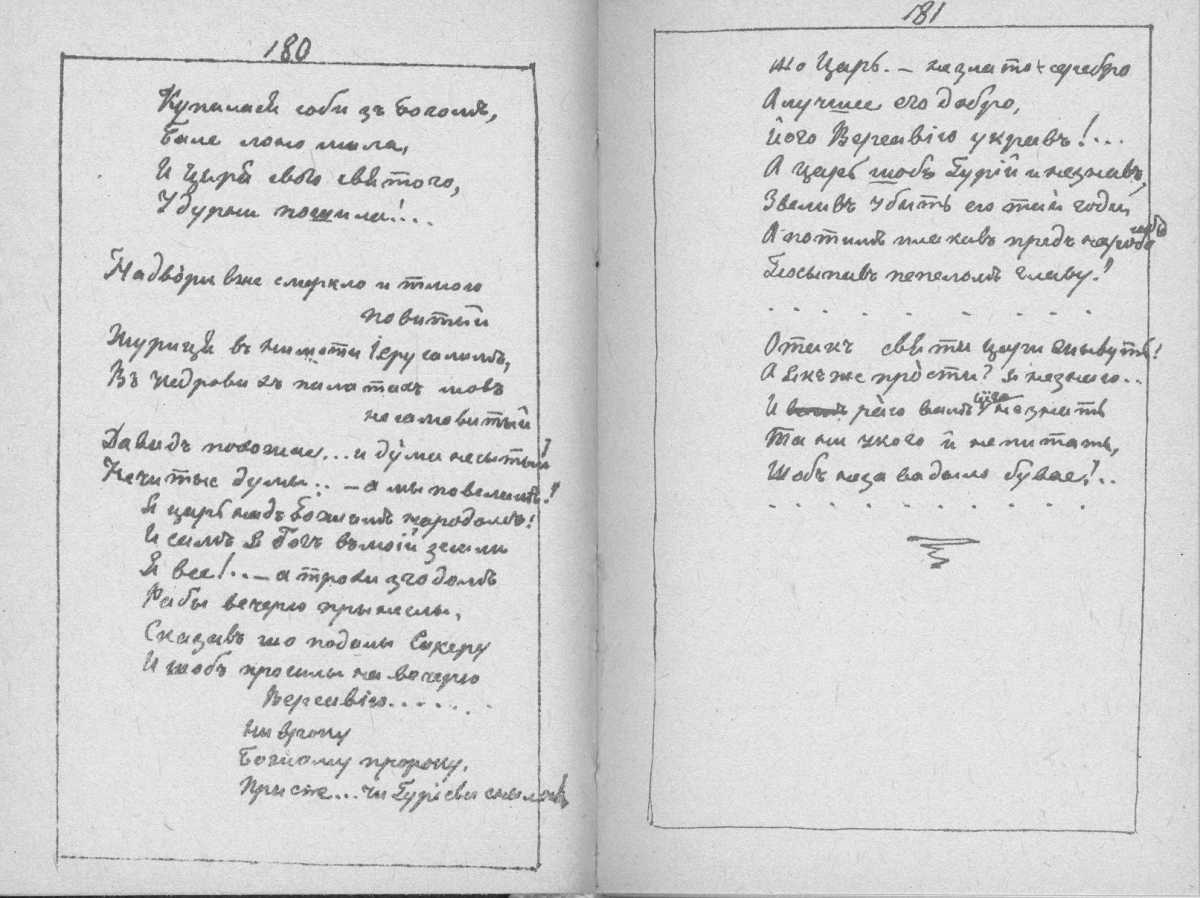 180
Купалася соби зъ Богомъ,
Бале лоно мила,
И Царя свого святого,
У дурни пошила!..
Надвори вже смеркло и тмою
повитый
Журиця въ нимоти Іерусалимъ,
Въ кедровихъ палатахъ мовъ
несамовитый
Давидъ походжае... и думи несытый
Нечитые думы.. — а мы повелимъ!
Я царь надъ Божимъ народомъ!
И самъ я Богъ въ моій земли
Я все!.. — а трохи згодомъ
Рабы вечерю прынеслы,
Сказавъ шо подалы Сикеру
И щобъ просилы на вечерю
Версавію......
Нывроку
Божиому пророку,
Прыспе... чи Гурієви снылось
181
шо Царь. — не злато-серебро
А лучшее его добро,
Його Версавію укравъ!...
А царь щобъ Гурій и незнавъ,
Звеливъ убить его тиеи годи,
А потимъ плакавъ предъ народомъ
Посыпавъ пепеломъ главу!
. . . . . . . . . .
Отакъ святи цари живуть!
А якъ же прости? я незнаю..
И раю вамъ сіего незнать
Та ни укого й непитать,
Шобъ незавадыло бувае!..
. . . . . . . . . .